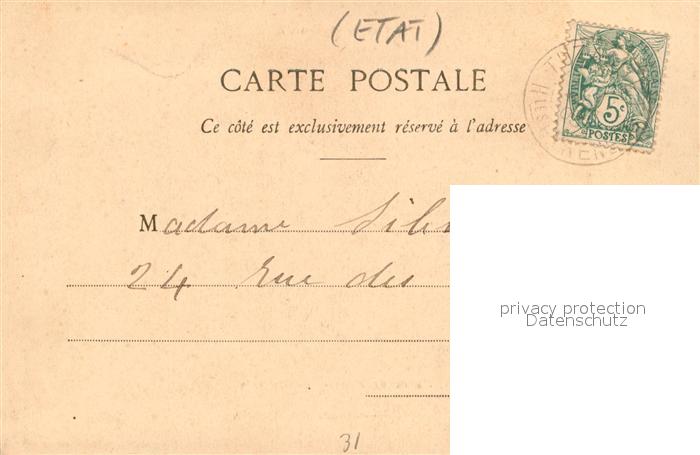 (ETAT)
CARTE POSTALE
Ce côté est exclusivement réservé à l'adresse
5c
POSTES
Madame
24 Rue des
privacy protection
Datenschutz
31